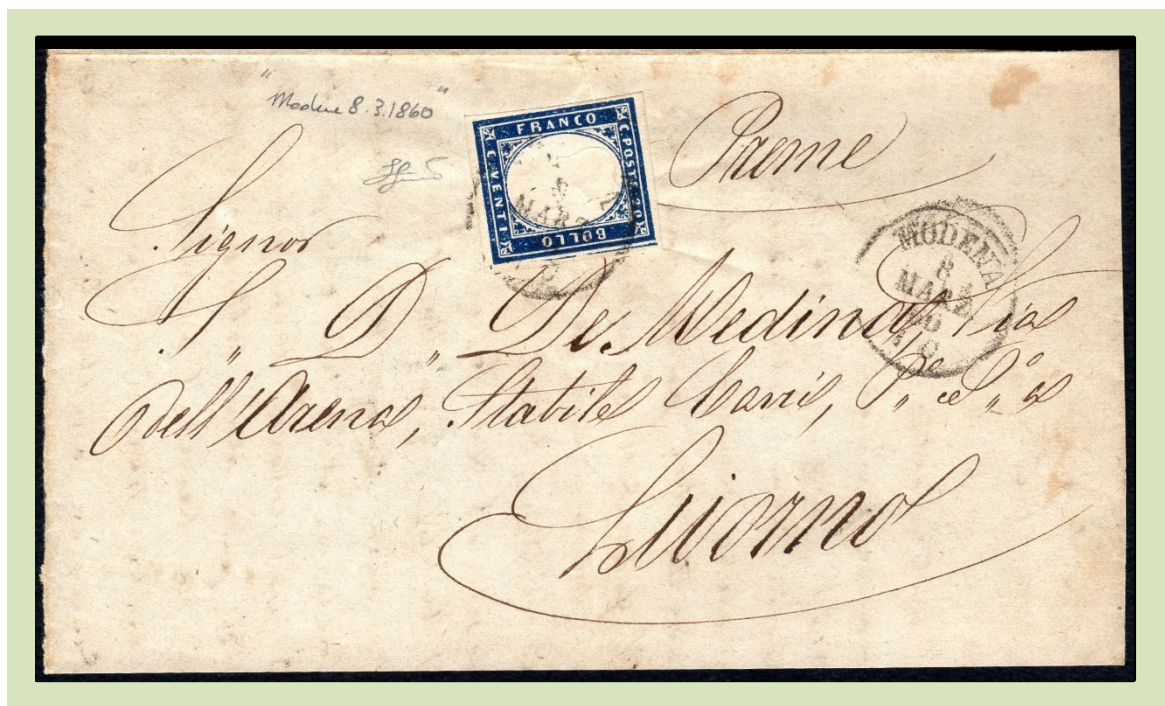 "Modena 8.3.1860"
FRANCO
C. POSTE 20
BOLLO
C. VENTI
8
MARZ
Preme
MODENA
8
MARZ
60
Signor
S. D. De Medina, Via
dell'Arena, Stabile
Livorno